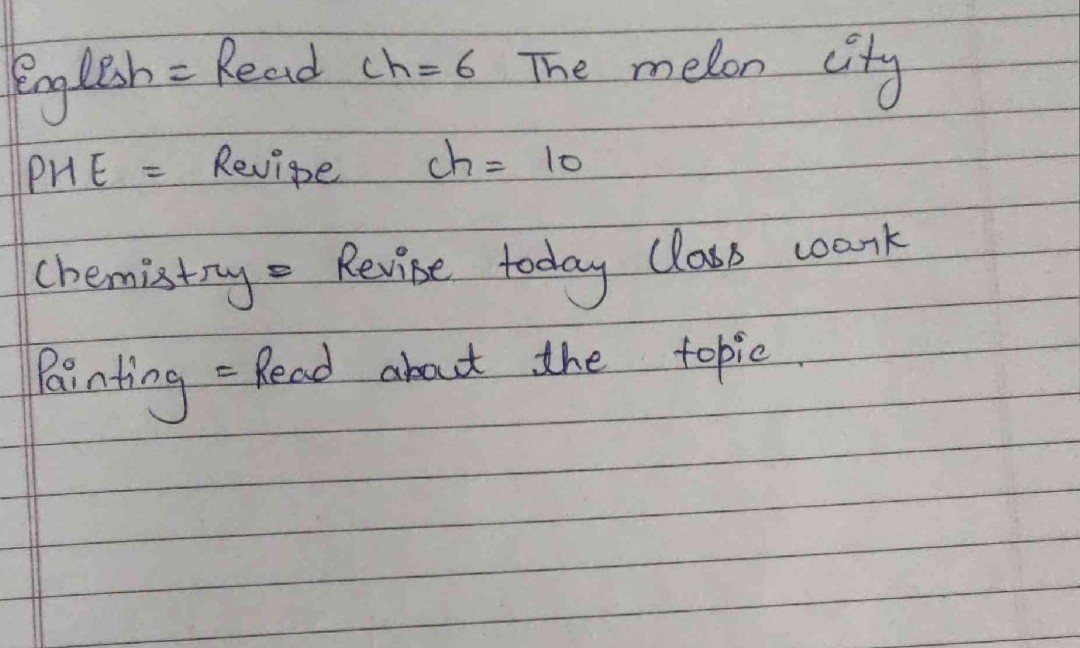 English = Read ch = 6 The melon city
PHE = Revise ch = 10
Chemistry = Revise today Class woark
Painting = Read about the topic.